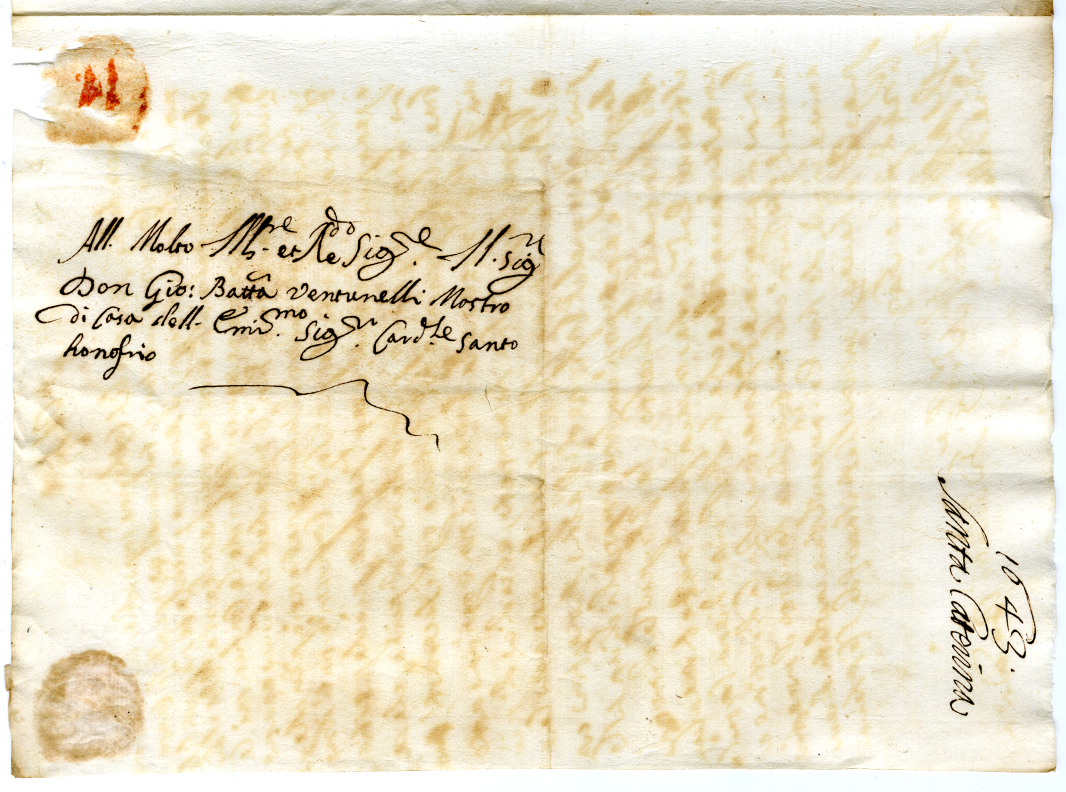 All. Molto Ill.re et Re.do Sig.re Il Sig.r
Don Gio: Batta Venturelli Mastro
di Casa dell. Emi.mo Sig.r Card.le Santo
honofrio
1643.
Santa Caterina